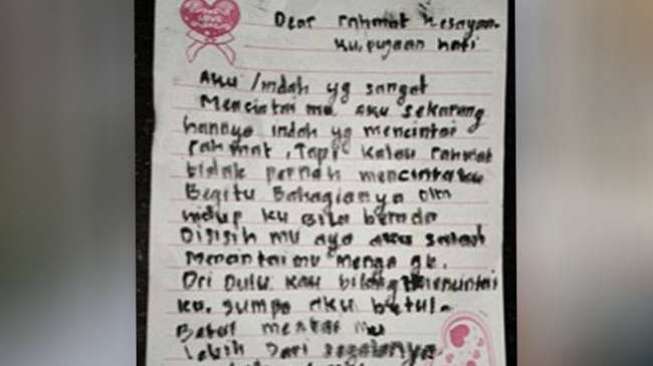 Dear rahmat kesayan-
ku, pujaan hati
Aku Indah yg sangat
Mencintai mu aku sekarang
hanya indah yg mencintai
rahmat, Tapi kalau rahmat
tidak pernah mencintaku
Begitu Bahagianya dlm
hidup ku Bila berada
Disisih mu aya aku salah
Mencintaimu Menga gk.
Dri Dulu kau bilang mencintai
ku. Sumpa aku betul-
Betul
Lebih Dari segalanya